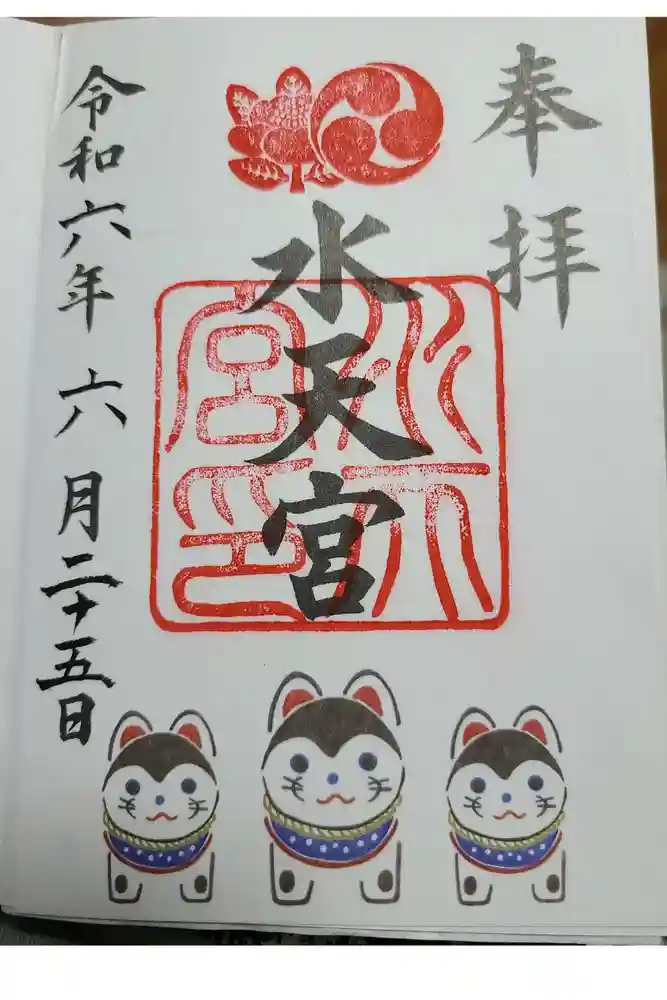 奉拝
水天宮
水天宮印
令和六年 六月二十五日